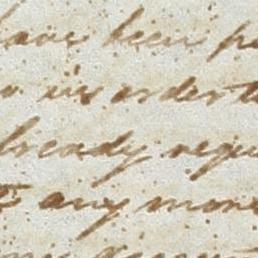 have been p
in order t
already requ
any more